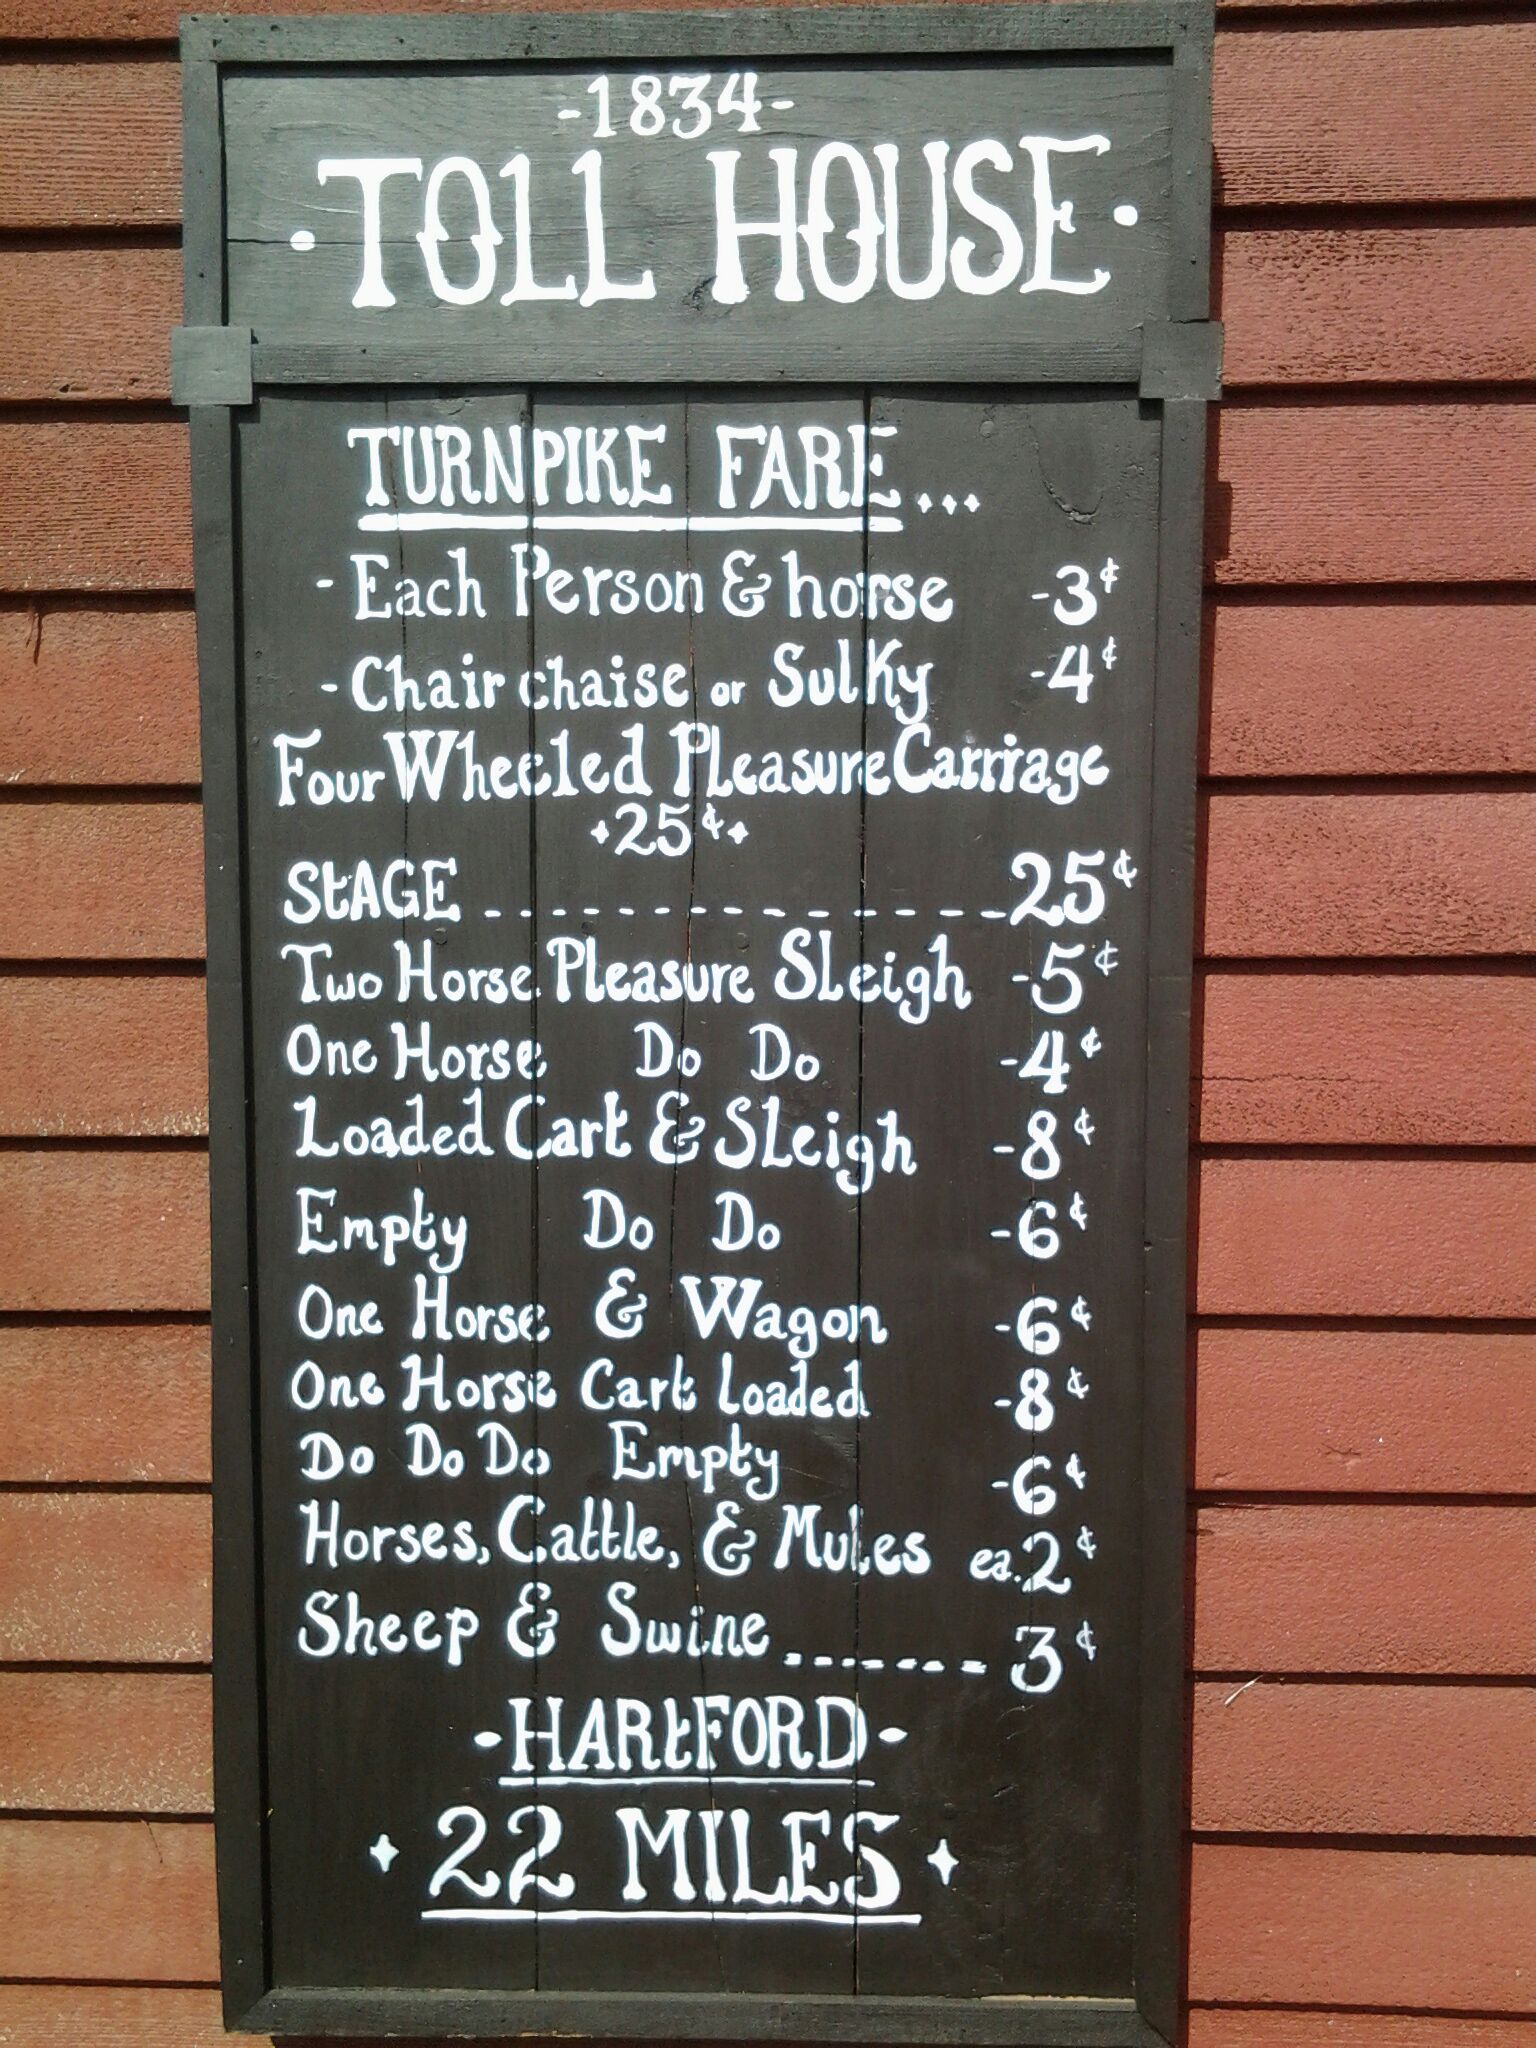 -1834-
·TOLL HOUSE·
TURNPIKE FARE...
-Each Person & horse -3¢
-Chair chaise or Sulky -4¢
Four Wheeled Pleasure Carrriage
·25¢·
StAGE _ _ _ _ _ _ _ _ _ _ _ _ _ _ _ 25¢
Two Horse Pleasure Sleigh -5¢
One Horse Do Do -4¢
Loaded Cart & Sleigh -8¢
Empty Do Do -6¢
One Horse & Wagon -6¢
One Horse Cart Loaded -8¢
Do Do Do Empty -6¢
Horses, Cattle, & Mules ea. 2¢
Sheep & Swine _ _ _ _ _ _ _ 3¢
-HARtFORD-
·22 MILES·